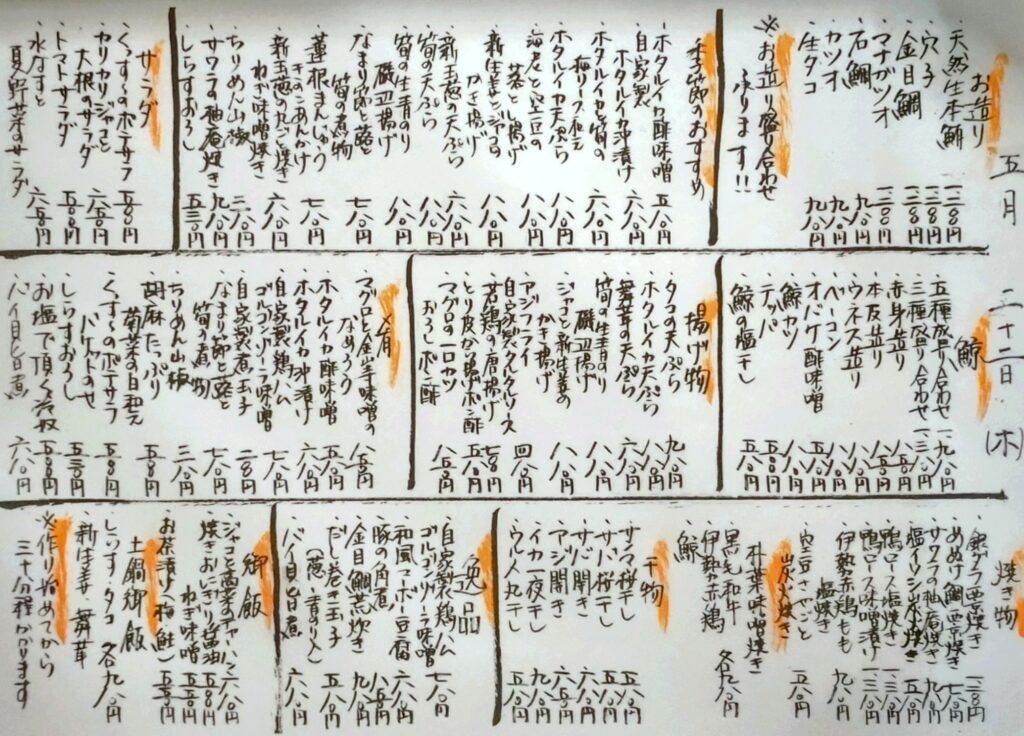 五月 二十二日 (木)
お造り
・天然生本鮪 一二〇〇円
・穴子 一三〇〇円
・金目鯛 一三〇〇円
・マナガツオ 一三〇〇円
・石鯛 九八〇円
・カツオ 九八〇円
・生タコ 九八〇円
※お造り盛り合わせ
承ります!!
季節のおすすめ
・ホタルイカ酢味噌 五八〇円
・自家製
ホタルイカ沖漬け 六八〇円
・ホタルイカと筍の
六八〇円
・ホタルイカ天ぷら 八八〇円
・海老と空豆の
八八〇円
・新生姜とジャコの
かき揚げ 八八〇円
・新玉葱の天ぷら 六八〇円
・筍の天ぷら 八八〇円
・筍の生青のり
磯辺揚げ 八八〇円
・なまり節と蕗と
筍の煮物 七八〇円
・蓮根まんじゅう
きのこあんかけ 七八〇円
・新玉葱の丸ごと焼き
ねぎ味噌焼き 六八〇円
・ちりめん山椒 三八〇円
・サワラの柚庵焼き 九八〇円
・しらすおろし 五三〇円
サラダ
・くんたまのポテサラ 五八〇円
・カリカリジャコと
大根のサラダ 六五〇円
・トマトサラダ 五八〇円
・水なすと
夏野菜のサラダ 六五〇円
鯨
・五種盛り合わせ 一九八〇円
・三種盛り合わせ 一三八〇円
・赤身造り 八五〇円
・本皮造り 八五〇円
・ウネス造り 八八〇円
・ベーコン 八八〇円
・オバケ酢味噌 五八〇円
・鯨カツ 八八〇円
・テッパ 五八〇円
・鯨の塩干し 五八〇円
揚げ物
・タコの天ぷら 九八〇円
・ホタルイカ天ぷら 八八〇円
・舞茸の天ぷら 六八〇円
・筍の生青のり
磯辺揚げ 八八〇円
・ジャコと新生姜の
かき揚げ 八八〇円
・アジフライ
自家製タルタルソース
・若鶏の唐揚げ
・とり皮から揚げポン酢 五八〇円
・マグロの一口カツ
おろしポン酢 八五〇円
肴
・マグロと金山寺味噌の
なめろう 八五〇円
・ホタルイカ酢味噌 五八〇円
・ホタルイカ沖漬け 六八〇円
・自家製鶏ハム
ゴルゴンゾーラ味噌 七八〇円
・自家製煮玉子 二八〇円
・なまり節と蕗と
筍の煮物 七八〇円
・ちりめん山椒 三八〇円
・胡麻たっぷり
菊菜の白和え 五八〇円
・くんたまのポテサラ
バケットのせ 五八〇円
・しらすおろし 五三〇円
・お塩で頂く冷奴 五八〇円
・バイ貝旨煮 六八〇円
焼き物
・銀ダラ西京焼き 一二八〇円
・あめぬけ鯛西京焼き 七八〇円
・サワラの柚庵焼き 九八〇円
・塩イワシ炭火焼き 五八〇円
・鴨ロース塩焼き 一三八〇円
・鴨ロース味噌漬け 一三八〇円
・伊勢赤鶏もも
塩焼き 九八〇円
・空豆さやごと
炭火焼き 五八〇円
・朴葉味噌焼き
黒毛和牛
伊勢赤鶏 各九八〇円
鯨
干物
・サンマ桜干し 五八〇円
・サバ桜干し 五八〇円
・サバ開き 六八〇円
・アジ開き 六五〇円
・イカ一夜干し 九八〇円
・ウルメ丸干し 五八〇円
逸品
・自家製鶏ハム
ゴルゴンゾーラ味噌 七八〇円
・和風マーボー豆腐 六八〇円
・豚の角煮 八五〇円
・金目鯛荒炊き 九八〇円
・だし巻き玉子
(葱、青のり入) 六八〇円
・バイ貝旨煮 六八〇円
御飯
・ジャコと高菜のチャーハン 六八〇円
・焼きおにぎり醤油 五八〇円
ねぎ味噌 五五〇円
・お茶漬け(梅、鮭) 五五〇円
土鍋御飯
・しらす・タコ 各九八〇円
・新生姜、舞茸
※作り始めてから
三十分程かかります